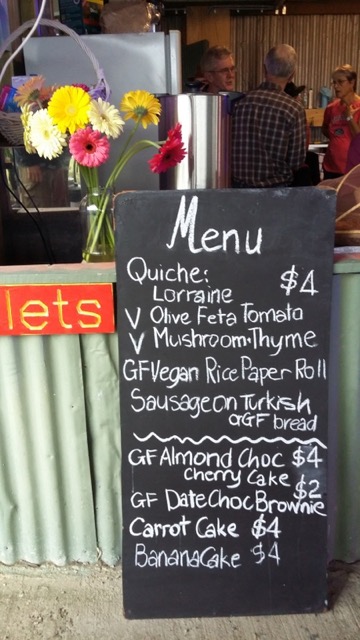 Menu
Quiche: $4
Lorraine
V Olive Feta Tomato
V Mushroom·Thyme
GF Vegan Rice Paper Roll
Sausage on Turkish
or GF bread
GF Almond Choc $4
cherry Cake
GF Date Choc Brownie $2
Carrot Cake $4
Banana Cake $4
lets